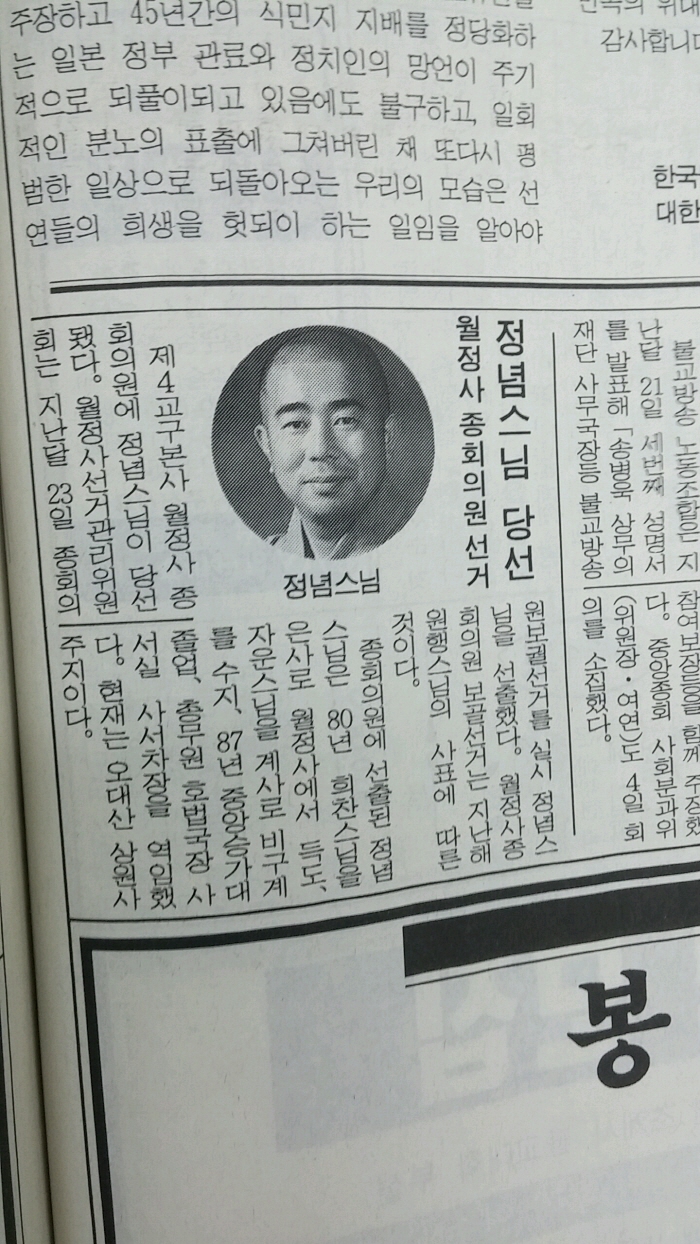 주장하고 45년간의 식민지 지배를 정당화하
는 일본 정부 관료와 정치인의 망언이 주기
적으로 되풀이되고 있음에도 불구하고, 일회
적인 분노의 표출에 그쳐버린 채 또다시 평
범한 일상으로 되돌아오는 우리의 모습은 선
연들의 희생을 헛되이 하는 일임을 알아야
위대
감사합니다
한국
대한
불교방송 노동조합은 지
난달 21일 세번째 성명서
를 발표해 「송병욱 상무의
재단 사무국장등 불교방송
참여보장등을 함께 주장했
다. 중앙종회 사회분과위
(위원장·여연)도 4일 회
의를 소집했다.
정념스님 당선
월정사 종회의원 선거
정념스님
제4교구본사 월정사 종
회의원에 정념스님이 당선
됐다. 월정사선거관리위원
회는 지난달 23일 종회의
원보궐선거를 실시 정념스
님을 선출했다. 월정사종
회의원 보골선거는 지난해
원행스님의 사표에 따른
것이다.
종회의원에 선출된 정념
스님은 80년 희찬스님을
은사로 월정사에서 득도,
자운스님을 계사로 비구계
를 수지, 87년 중앙승가대
졸업, 총무원 호법국장 사
서실 사서차장을 역임했
다. 현재는 오대산 상원사
주지이다.
봉